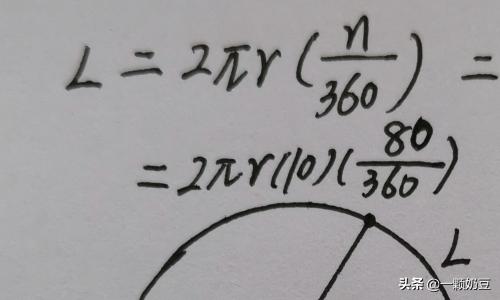 L = 2πr(n/360) =
= 2πr(10)(80/360)
L
头条 @一颗奶豆